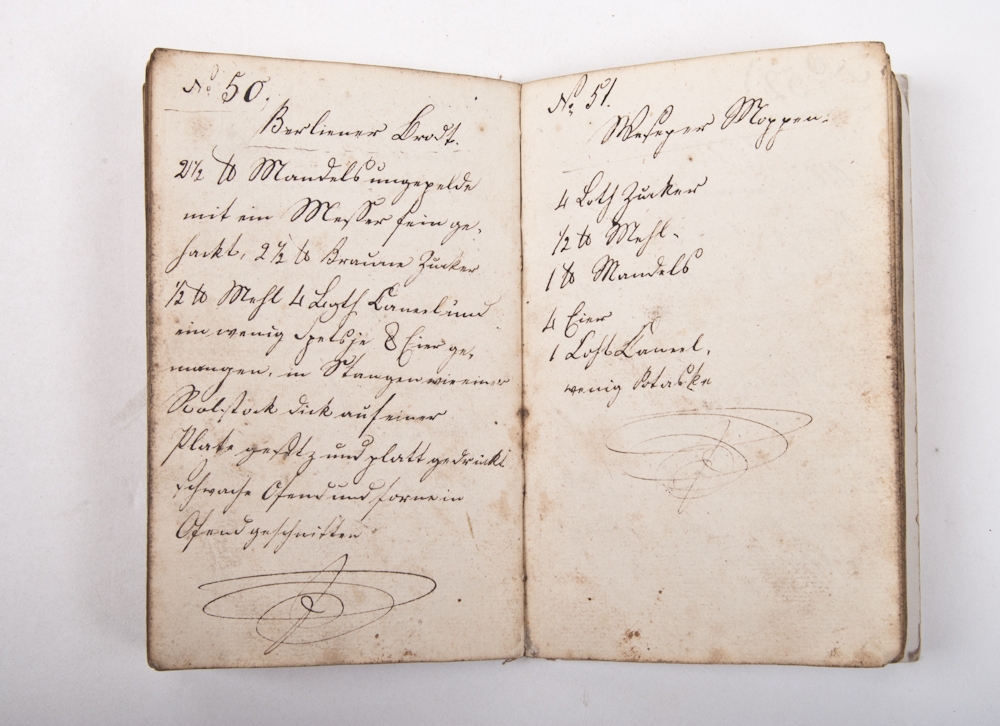 No. 50.
Berliener Brodt.
2 1/2 ℔ Mandels ungepelde
mit ein Messer fein ge-
hackt, 2 1/2 ℔ Braune Zucker
1/2 ℔ Mehl 4 Logth Caneel und
ein wenig Spetsje 8 Eier ge-
mangen, in Stangen wie einer
Rolstock dick auf einer
Plate gesetz und platt gedrückt
schwache Ofend und forne in
Ofend geschnitten
No. 51.
Weseper Moppen.
4 Loth Zucker
1/2 ℔ Mehl.
1 ℔ Mandels
4 Eier
1 Loht Caneel.
wenig Potaske